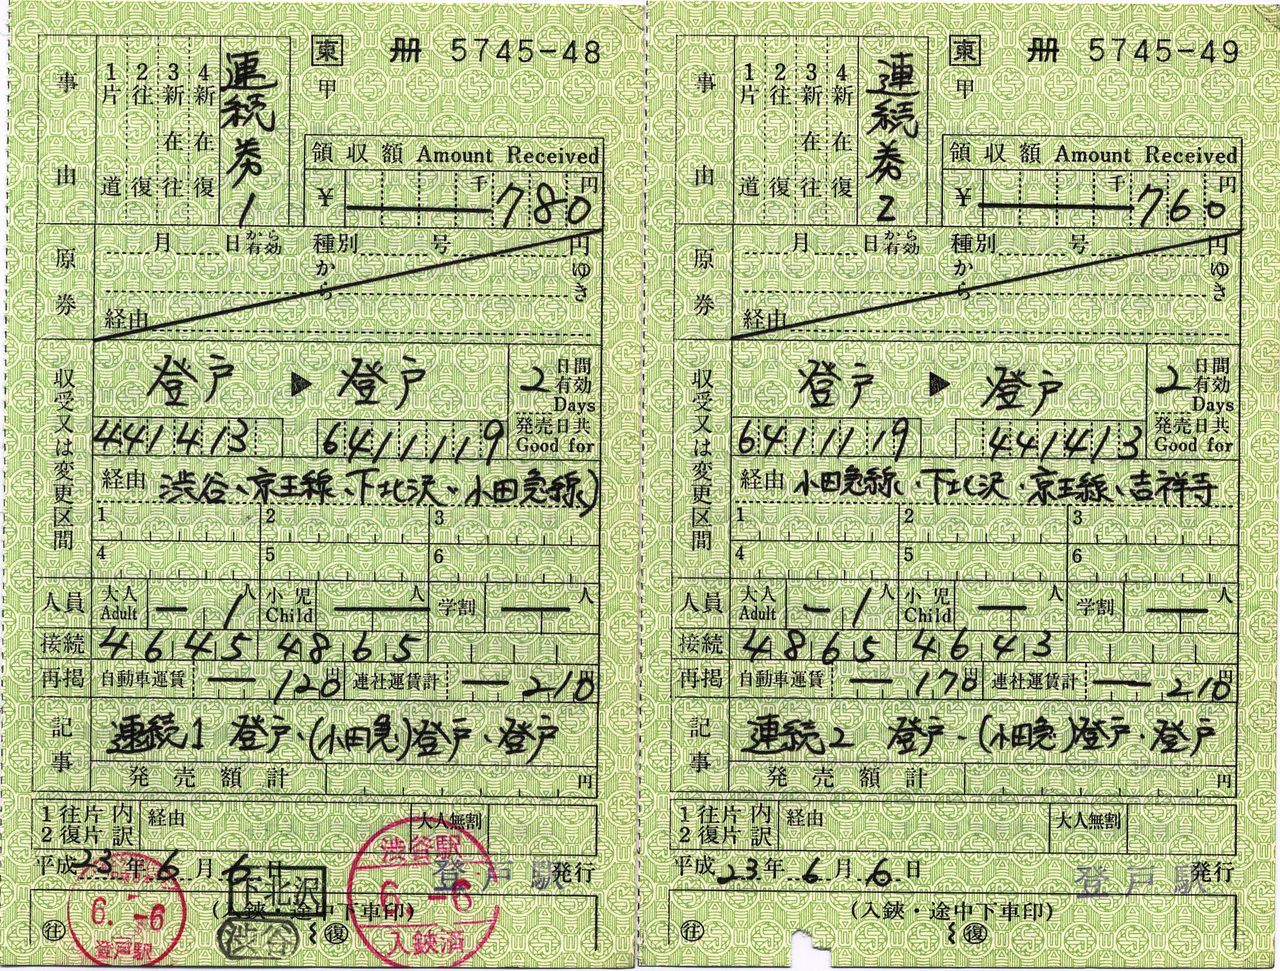 東 冊 5745-48
甲
事由
1片道
2往復
3新在往
4新在復
連続券1
領収額 Amount Received
¥ 千 780 円
原券
月 日から有効 種別 号 円
から ゆき
経由
収受又は変更区間
登戸 ▶ 登戸
2 日間有効 Days
発売日共 Good for
441413 6411119
経由 渋谷、京王線、下北沢・小田急線)
1 2 3
4 5 6
人員 大人 Adult 1人 小児 Child 人 学割 人
接続 4645 4865
再掲 自動車運賃 120円 連社運賃計 210円
記事 連続1 登戸、(小田急)登戸、登戸
発売額計 円
1往片 2復片 内訳 経由 大人無割
平成23年6月6日 登戸駅 発行
(入鋏・途中下車印)
往 復
6.-6 登戸駅
下北沢
渋谷
渋谷駅 6.-6 入鋏済
東 冊 5745-49
甲
事由
1片道
2往復
3新在往
4新在復
連続券2
領収額 Amount Received
¥ 千 760 円
原券
月 日から有効 種別 号 円
から ゆき
経由
収受又は変更区間
登戸 ▶ 登戸
2 日間有効 Days
発売日共 Good for
6411119 441413
経由 小田急線・下北沢・京王線、吉祥寺
1 2 3
4 5 6
人員 大人 Adult 1人 小児 Child 人 学割 人
接続 4865 4643
再掲 自動車運賃 170円 連社運賃計 210円
記事 連続2 登戸-(小田急)登戸、登戸
発売額計 円
1往片 2復片 内訳 経由 大人無割
平成23年6月6日 登戸駅 発行
(入鋏・途中下車印)
往 復